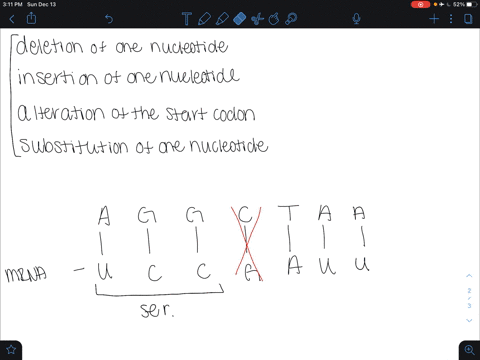 3:11 PM Sun Dec 13
52%
deletion of one nucleotide
insertion of one nucleotide
alteration of the start codon
substitution of one nucleotide
A G G C T A A
mRNA - U C C G A U U
ser.